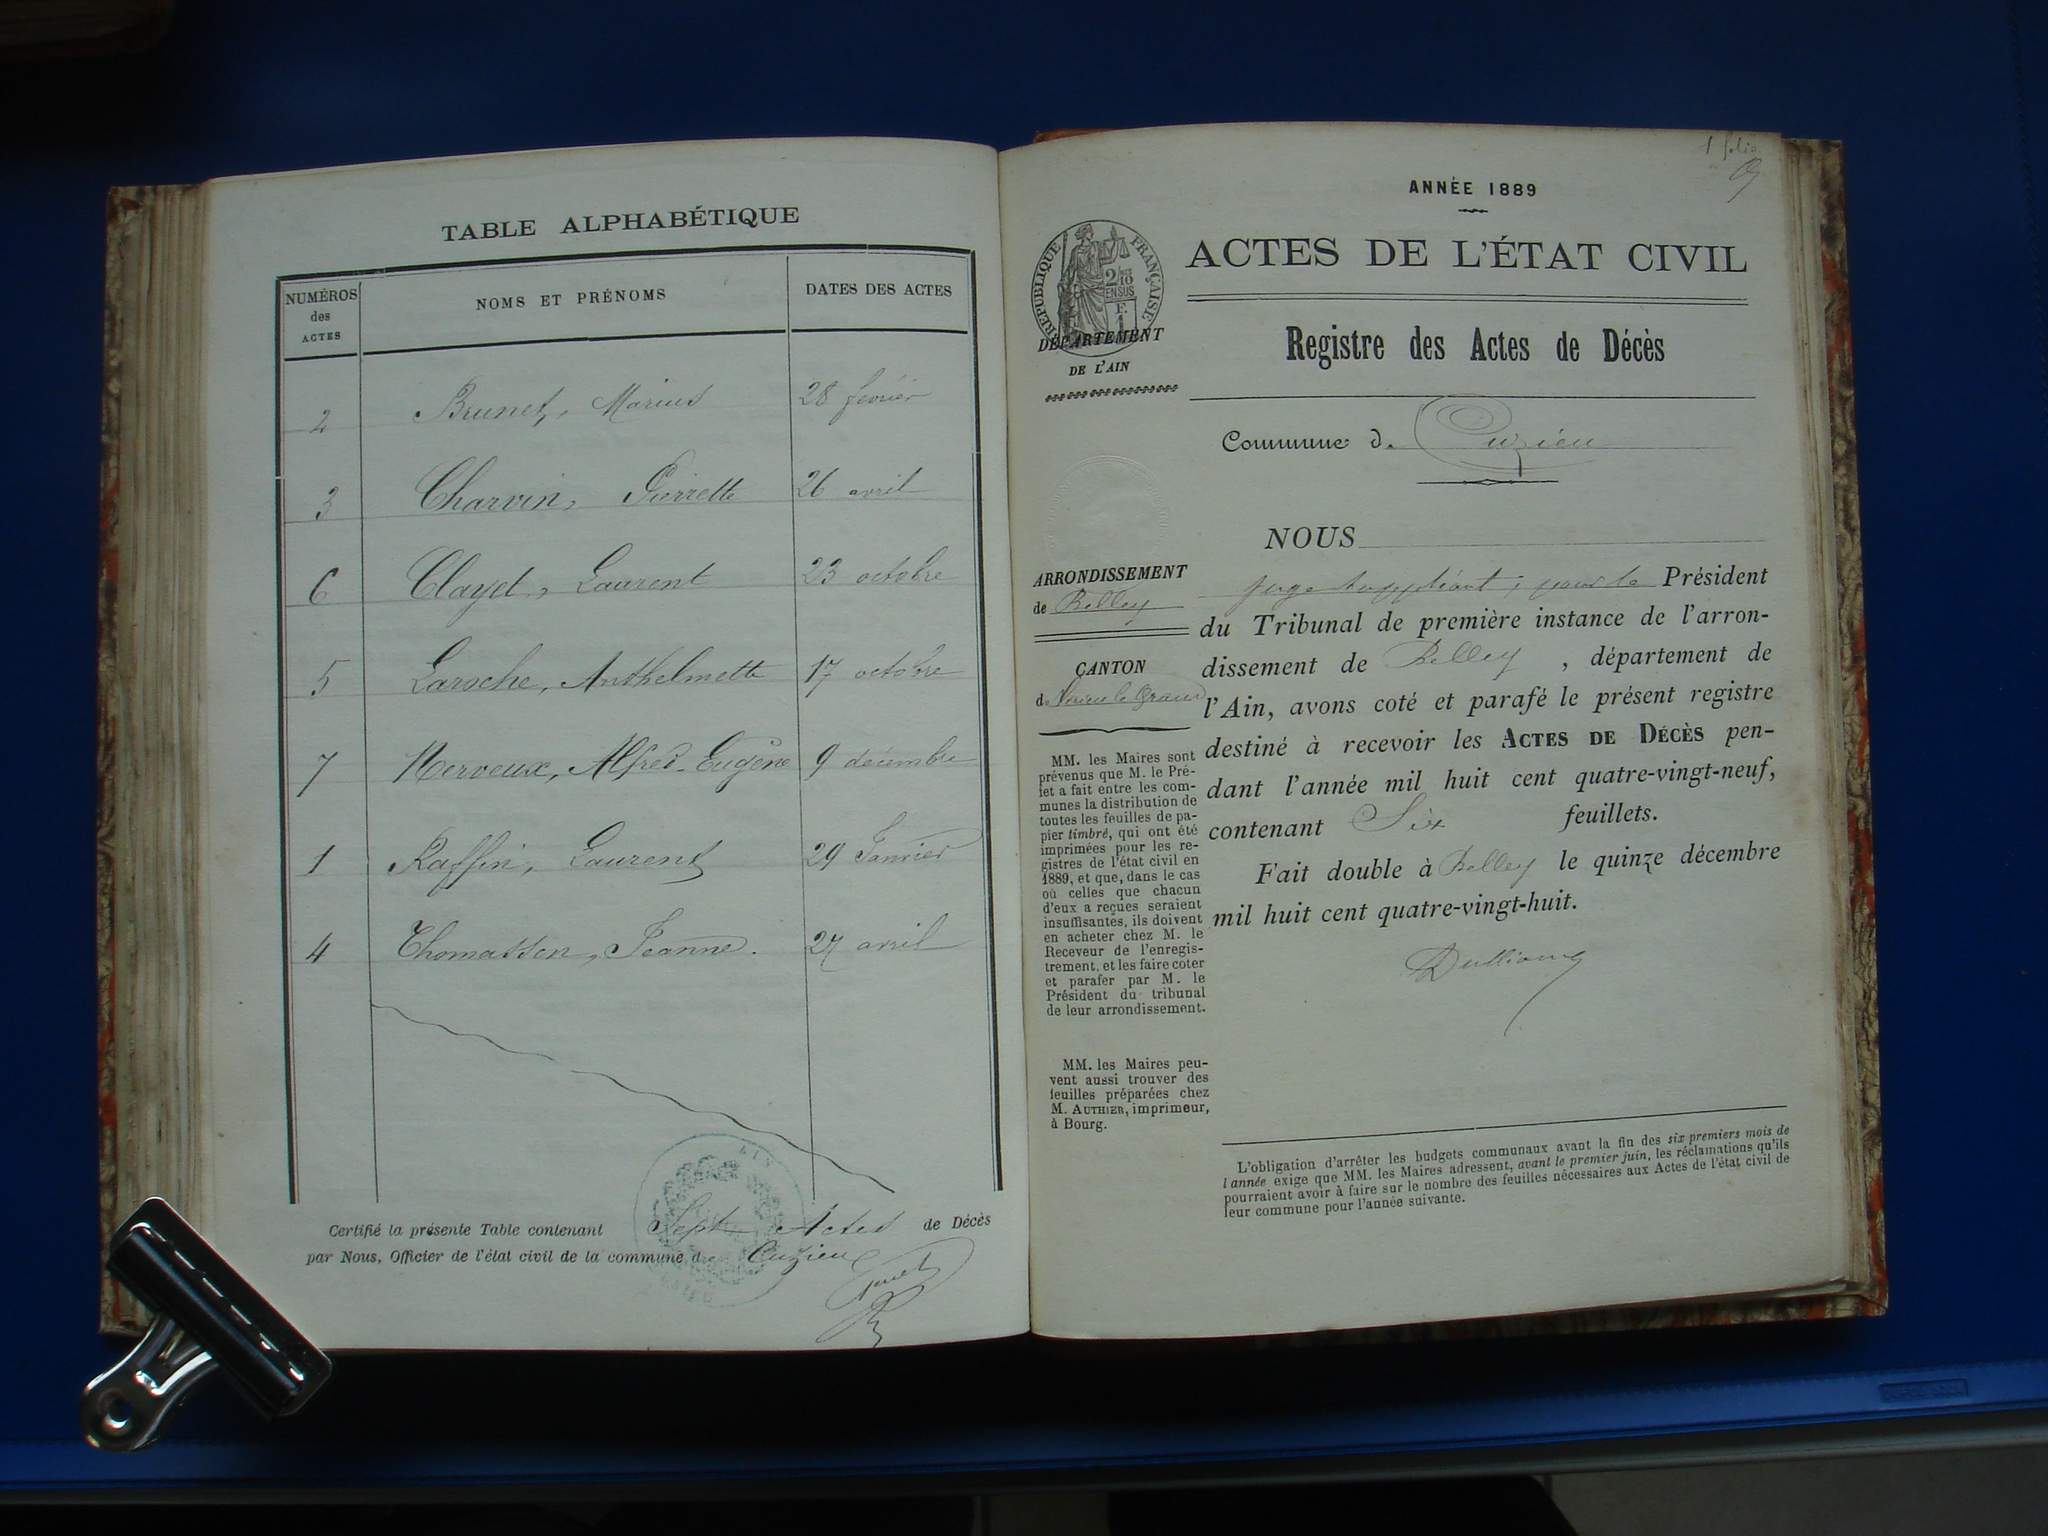 TABLE ALPHABÉTIQUE
NUMÉROS des ACTES NOMS ET PRÉNOMS DATES DES ACTES
2 Brunet, Marius 28 février
3 Charvin, Pierrette 26 avril
6 Clayet, Laurent 23 octobre
5 Laroche, Anthelmette 17 octobre
7 Nerveux, Alfred-Eugène 9 décembre
1 Raffin, Laurent 29 Janvier
4 Thomasson, Jeanne. 27 avril
Certifié la présente Table contenant Sept Actes de Décès
par Nous, Officier de l'état civil de la commune de Cuzieu
1 folio
ANNÉE 1889
ACTES DE L'ÉTAT CIVIL
RÉPUBLIQUE FRANÇAISE
2/10 EN SUS
F. 1
DÉPARTEMENT
DE L'AIN
Registre des Actes de Décès
Commune de Cuzieu
ARRONDISSEMENT
de Belley
CANTON
de Virieu le Grand
MM. les Maires sont
prévenus que M. le Pré-
fet a fait entre les com-
munes la distribution de
toutes les feuilles de pa-
pier timbré, qui ont été
imprimées pour les re-
gistres de l'état civil en
1889, et que, dans le cas
où celles que chacun
d'eux a reçues seraient
insuffisantes, ils doivent
en acheter chez M. le
Receveur de l'enregis-
trement, et les faire coter
et parafer par M. le
Président du tribunal
de leur arrondissement.
MM. les Maires peu-
vent aussi trouver des
feuilles préparées chez
M. AUTHIER, imprimeur,
à Bourg.
NOUS
juge suppléant, pour le Président
du Tribunal de première instance de l'arron-
dissement de Belley, département de
l'Ain, avons coté et parafé le présent registre
destiné à recevoir les ACTES DE DÉCÈS pen-
dant l'année mil huit cent quatre-vingt-neuf,
contenant Six feuillets.
Fait double à Belley le quinze décembre
mil huit cent quatre-vingt-huit.
L'obligation d'arrêter les budgets communaux avant la fin des six premiers mois de
l'année exige que MM. les Maires adressent, avant le premier juin, les réclamations qu'ils
pourraient avoir à faire sur le nombre des feuilles nécessaires aux Actes de l'état civil de
leur commune pour l'année suivante.